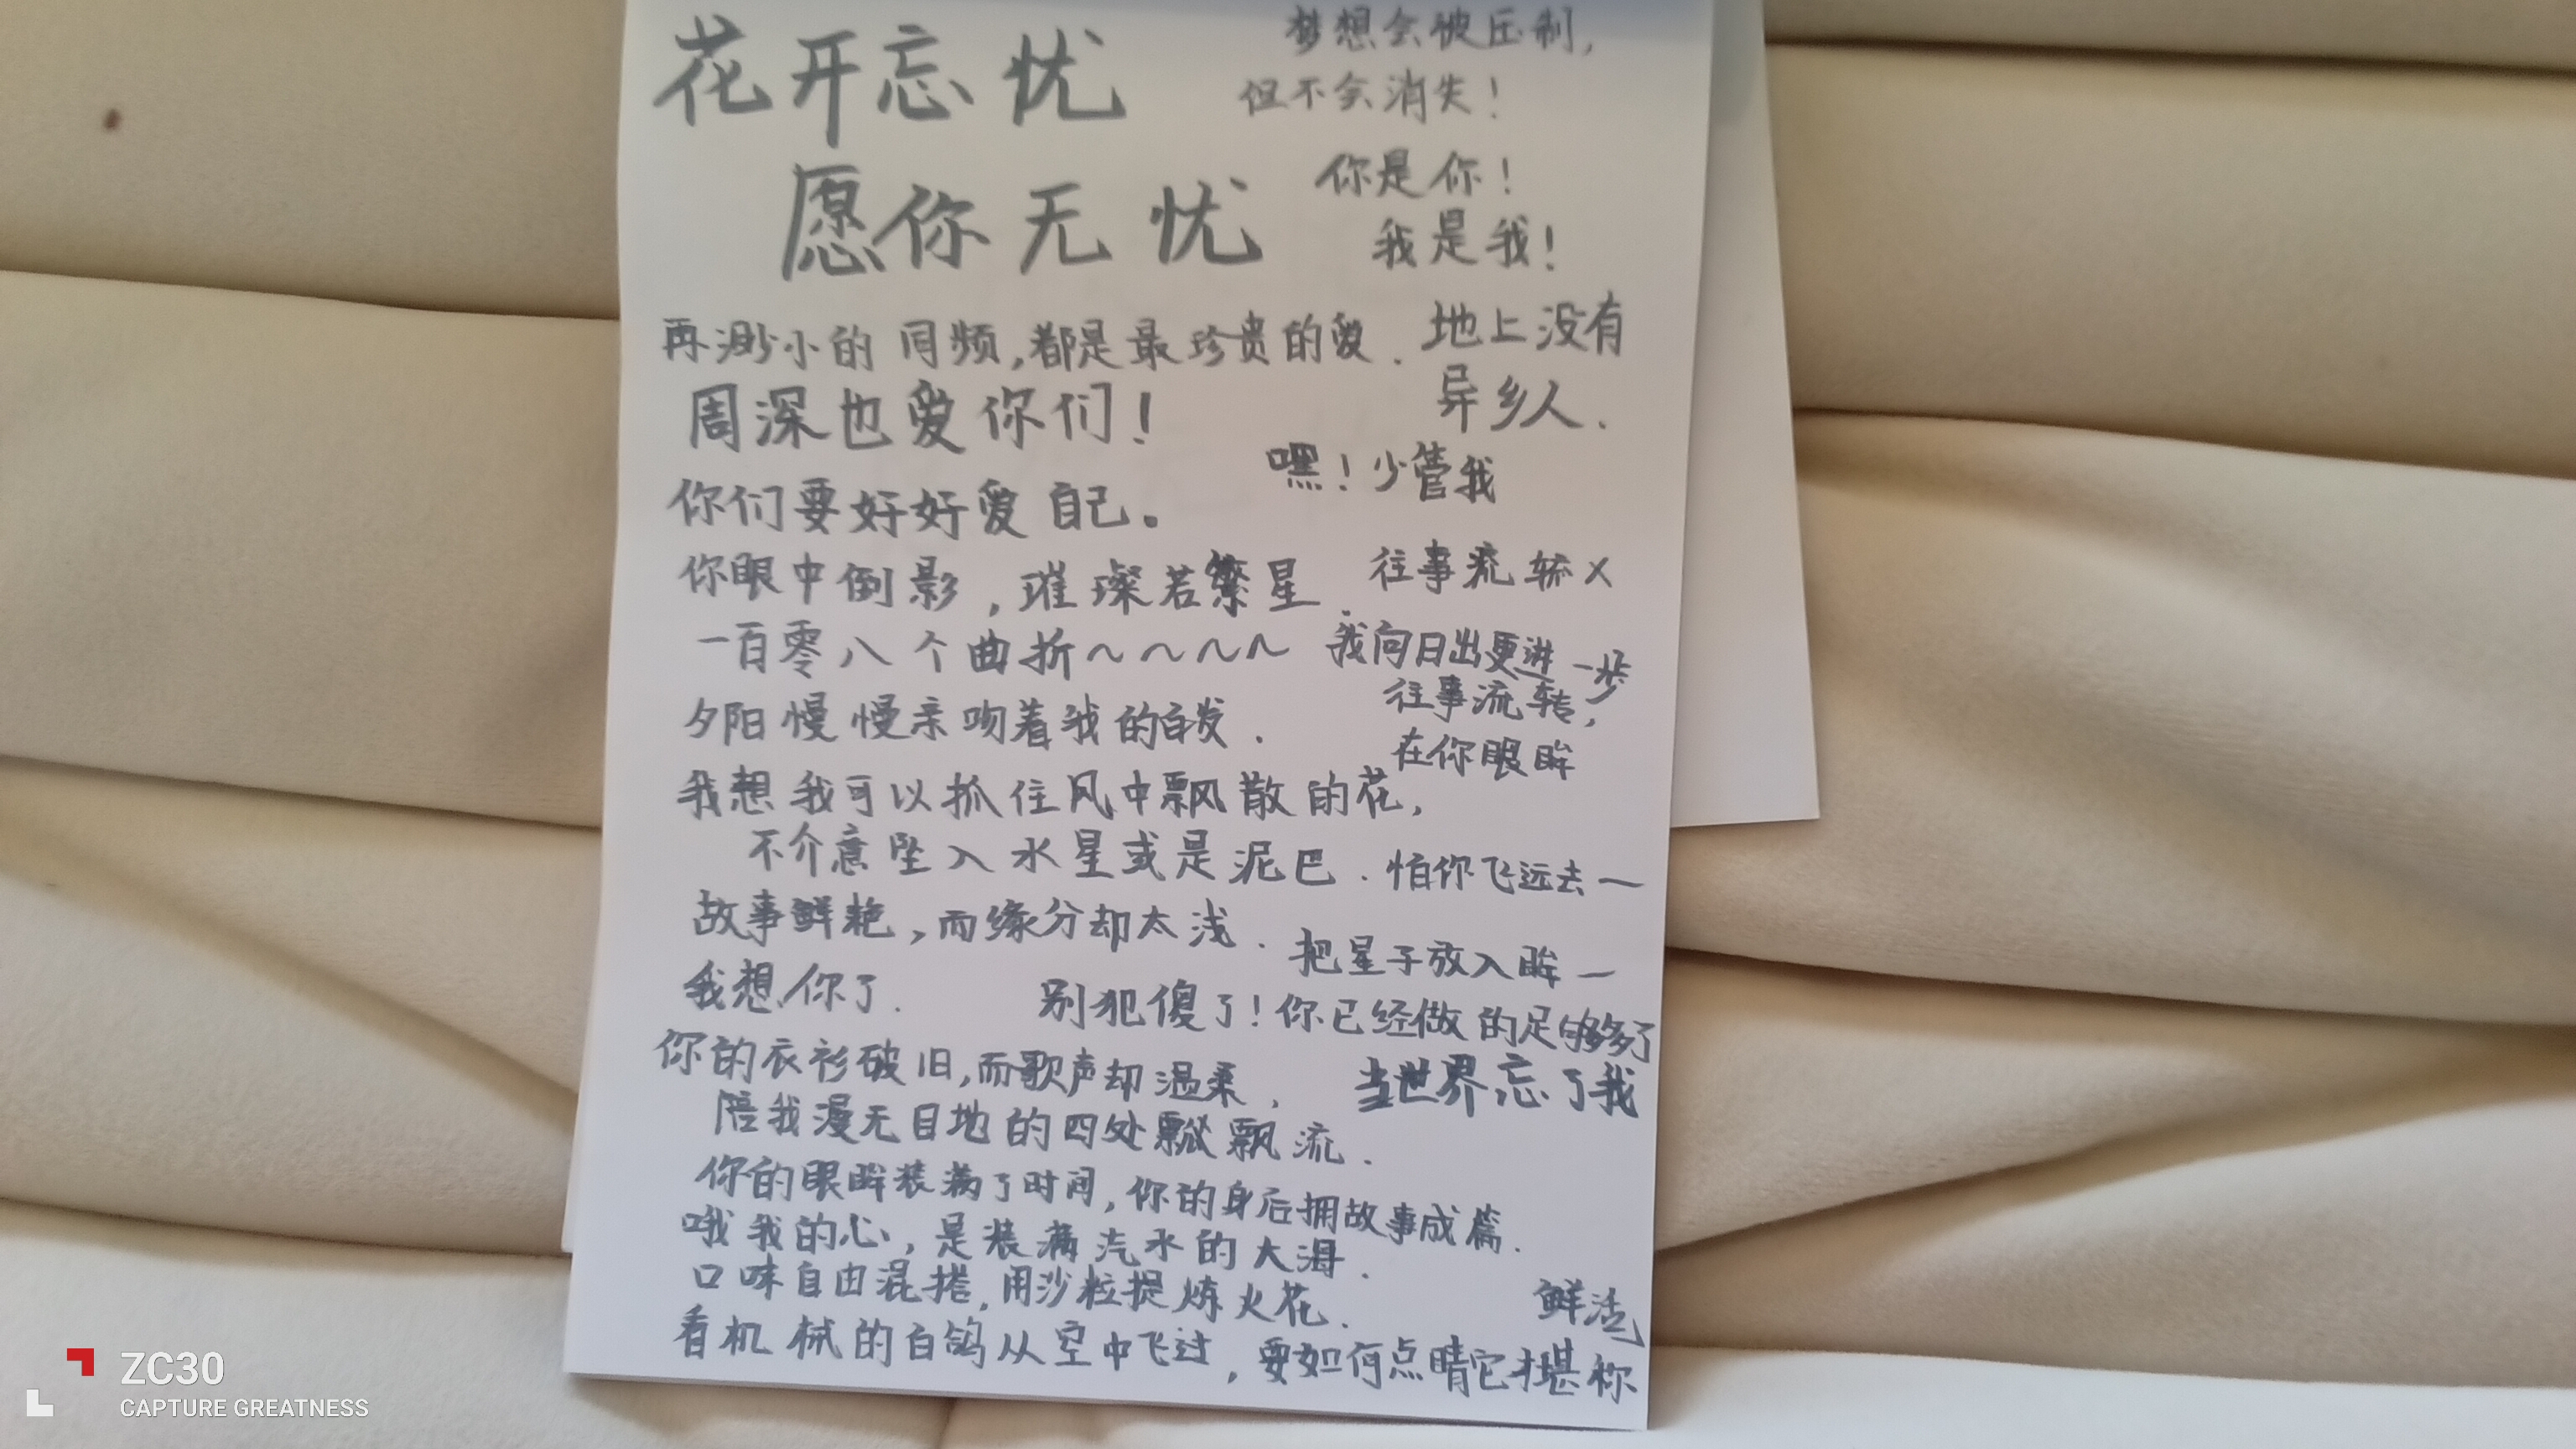 花开忘忧
梦想会被压制,
但不会消失!
愿你无忧
你是你!
我是我!
再渺小的同频,都是最珍贵的爱.
地上没有
异乡人.
周深也爱你们!
嘿!少管我
你们要好好爱自己。
你眼中倒影,璀璨若繁星.
往事流转x
一百零八个曲折~~~~
我向日出更进一步
往事流转,
在你眼眸
夕阳慢慢亲吻着我的白发.
我想我可以抓住风中飘散的花,
不介意坠入水星或是泥巴.
怕你飞远去一
故事鲜艳,而缘分却太浅.
把星子放入眸一
我想你了.
别犯傻了!你已经做的足够多了
你的衣衫破旧,而歌声却温柔,
当世界忘了我
陪我漫无目地的四处飘流.
你的眼眸装满了时间,你的身后拥故事成篇.
哦我的心,是装满汽水的大海.
口味自由混搭,用沙粒提炼火花.
看机械的白鸽从空中飞过,要如何点睛它才堪称
鲜活
ZC30
CAPTURE GREATNESS